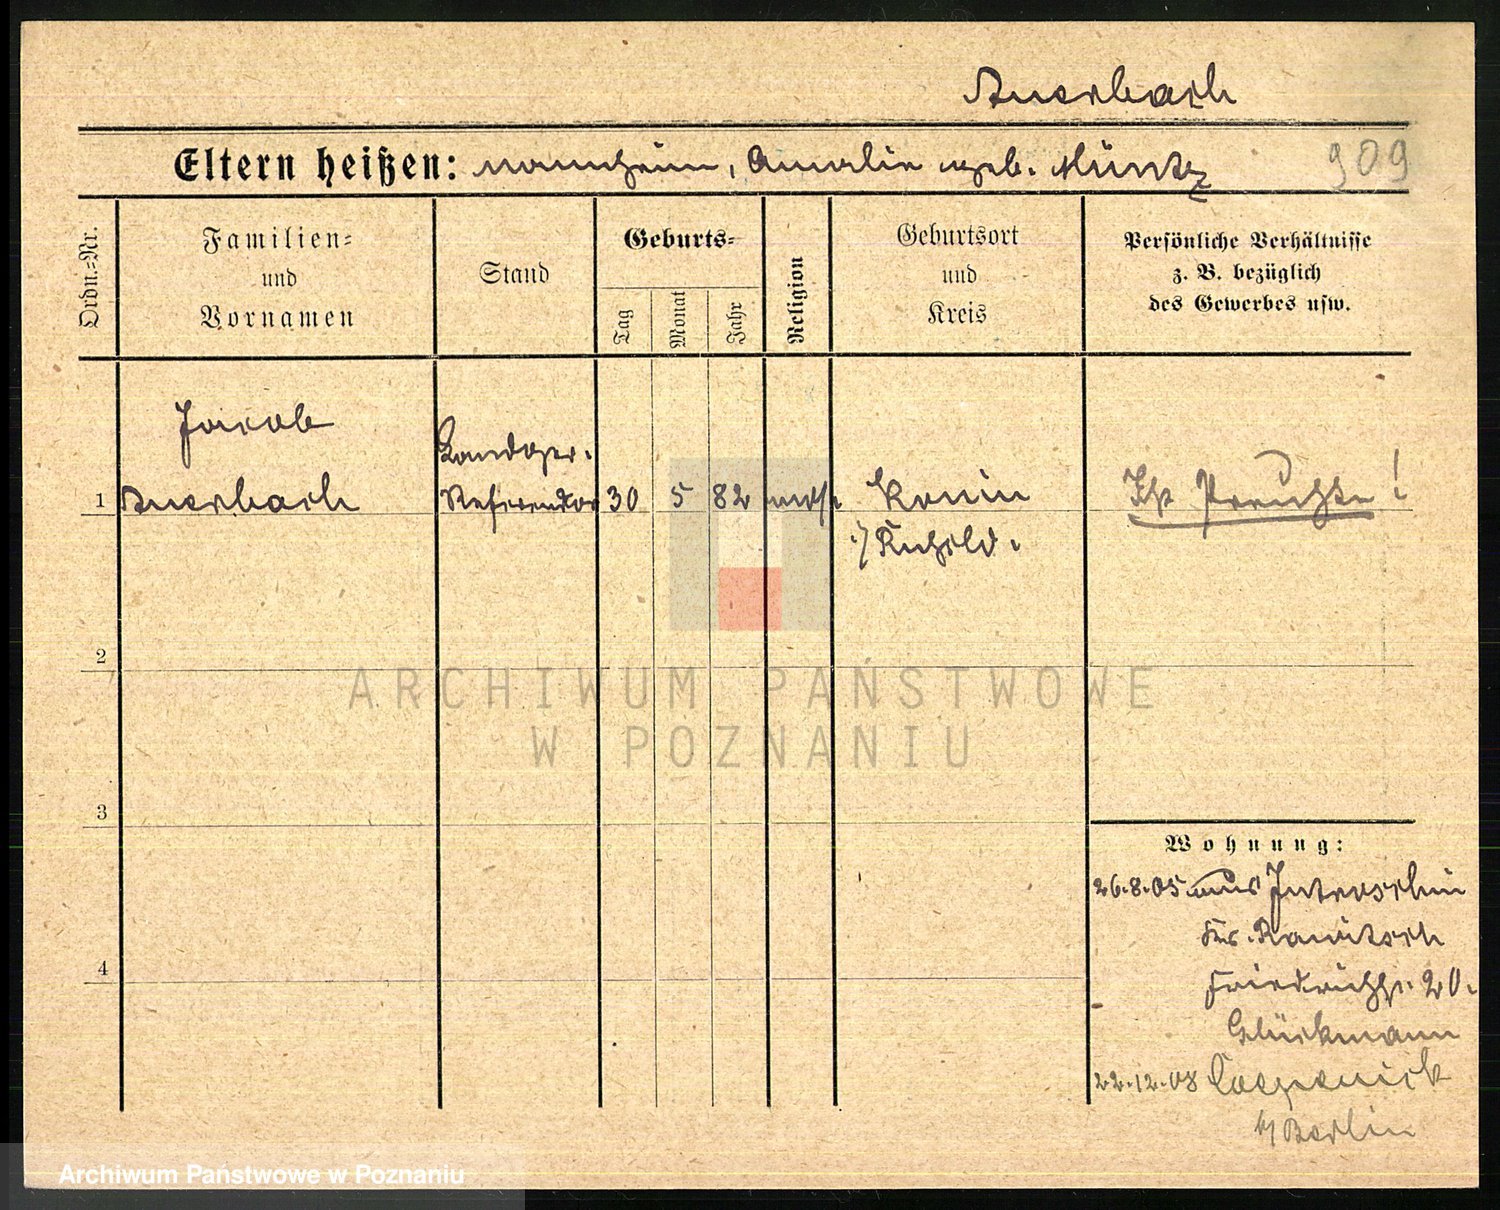 Auerbach
Eltern heißen: Mannheim, Amalie geb. Müntz
909
Ordn.=Nr.
Familien=
und
Vornamen
Stand
Geburts=
Tag
Monat
Jahr
Religion
Geburtsort
und
Kreis
Persönliche Verhältnisse
z. B. bezüglich
des Gewerbes usw.
Jacob
Landger.
1 Auerbach Referendar 30 5 82 mos. Konin Ist Preuße!
i/ Rußld.
2
ARCHIWUM PAŃSTWOWE
W POZNANIU
3
Wohnung:
26.8.05 aus Jutroschin
Kr. Rawitsch
4
Friedrichstr. 20.
Glückmann
22.12.08 Coepenick
b/ Berlin
Archiwum Państwowe w Poznaniu